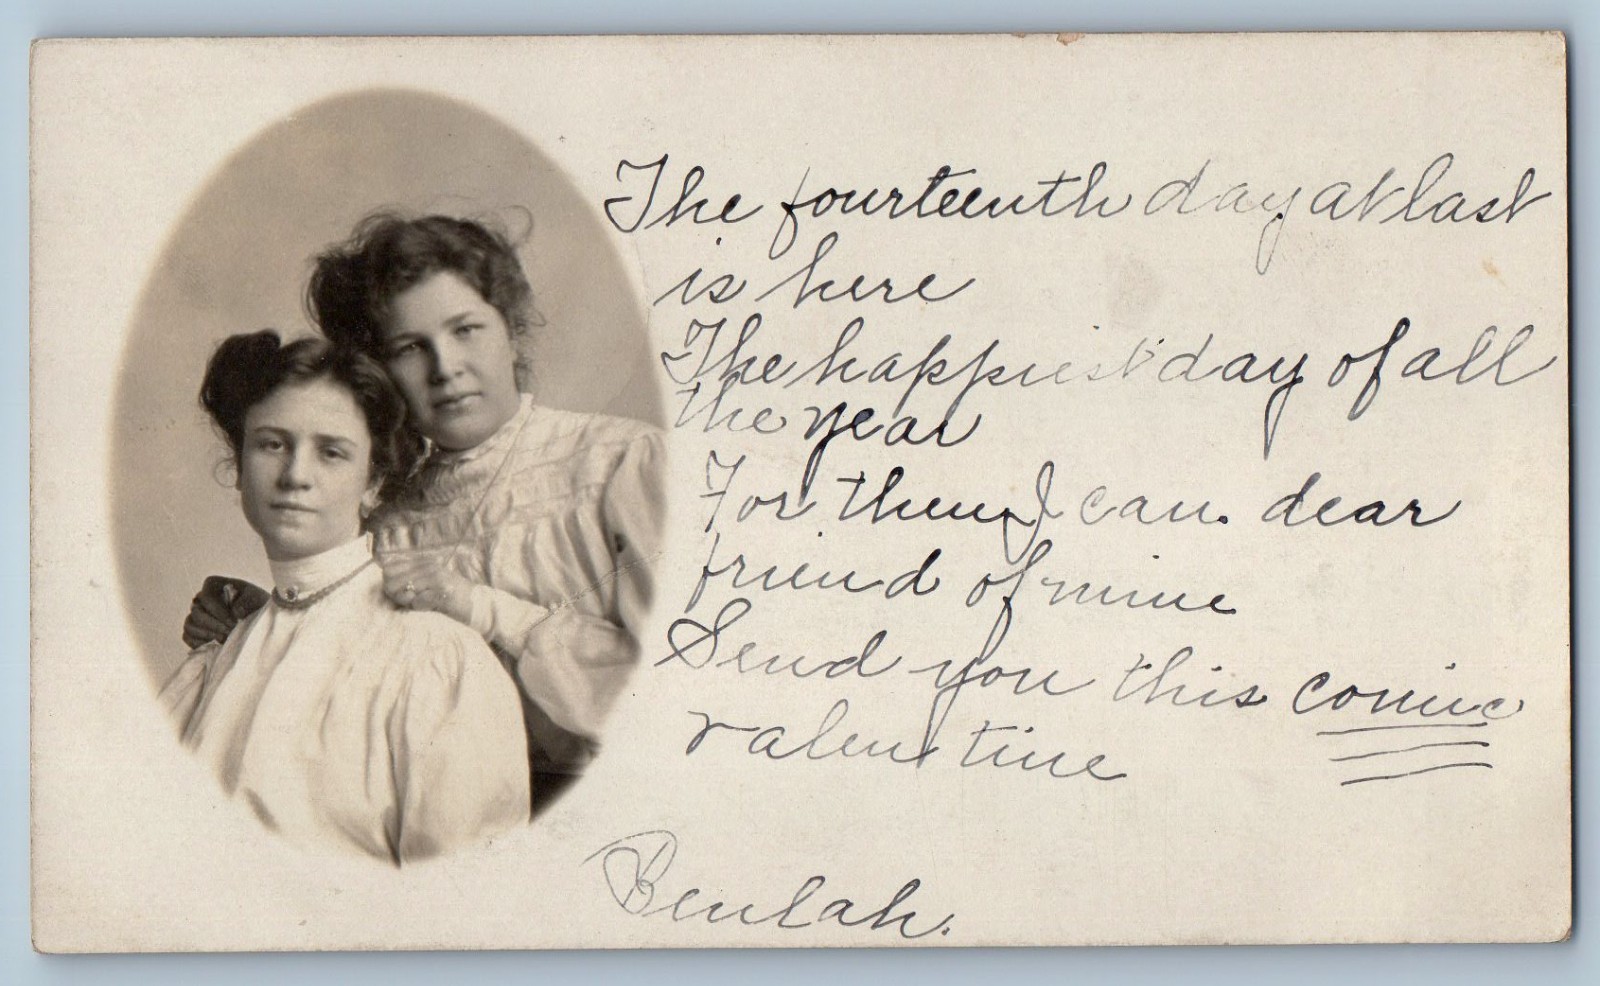 The fourteenth day at last
is here
The happiest day of all
the year
For then I can. dear
friend of mine
Send you this comic
valentine
Beulah.